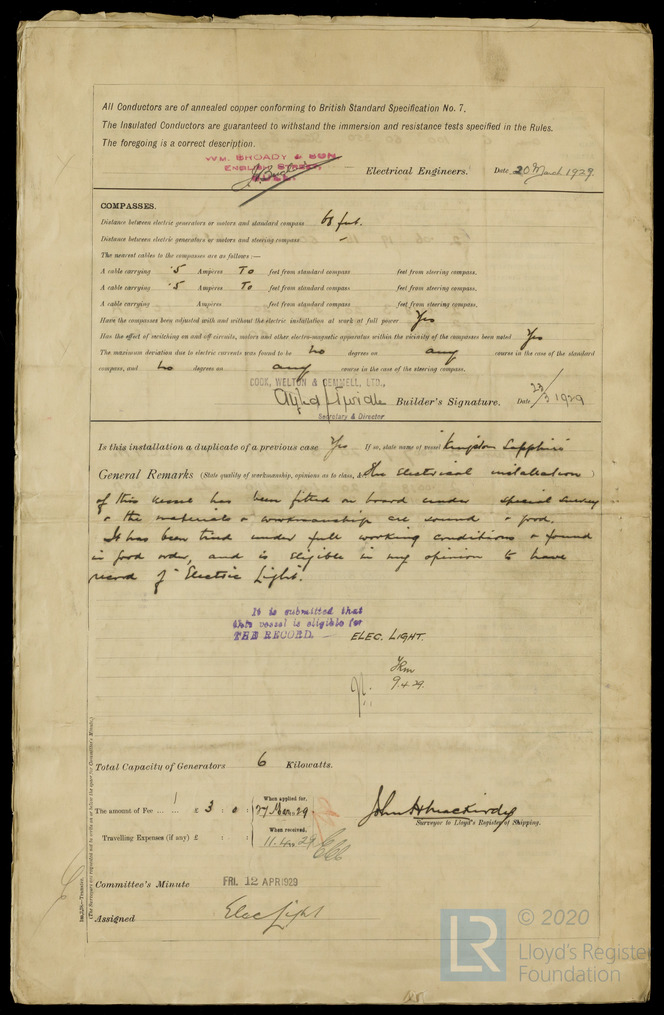 All Conductors are of annealed copper conforming to British Standard Specification No. 7.
The Insulated Conductors are guaranteed to withstand the immersion and resistance tests specified in the Rules.
The foregoing is a correct description.
WM. BROADY & SON
ENGLISH STREET,
HULL.
Electrical Engineers. Date 20th March 1929.
COMPASSES.
Distance between electric generators or motors and standard compass feet.
Distance between electric generators or motors and steering compass -
The nearest cables to the compasses are as follows :—
A cable carrying .5 Amperes To feet from standard compass feet from steering compass.
A cable carrying .5 Amperes To feet from standard compass feet from steering compass.
A cable carrying Amperes feet from standard compass feet from steering compass.
Have the compasses been adjusted with and without the electric installation at work at full power Yes
Has the effect of switching on and off circuits, motors and other electro-magnetic apparatus within the vicinity of the compasses been noted Yes
The maximum deviation due to electric currents was found to be No degrees on any course in the case of the standard
compass, and No degrees on any course in the case of the steering compass.
COOK, WELTON & GEMMELL, LTD.,
Builder's Signature. Date 23/3/1929
Secretary & Director
Is this installation a duplicate of a previous case Yes If so, state name of vessel Kingston Sapphire
General Remarks (State quality of workmanship, opinions as to class, &c. The Electrical installation )
of this vessel has been fitted on board under special survey
& the materials & workmanship are sound & good.
It has been tried under full working conditions & found
in good order, and is eligible in my opinion to have
record of "Electric Light".
It is submitted that
this vessel is eligible for
THE RECORD. — ELEC. LIGHT.
9.4.29.
Total Capacity of Generators 6 Kilowatts.
The amount of Fee ... ... £ 3 : 0 : When applied for, 27 Mar. 29.
Travelling Expenses (if any) £ : : When received, 11.4.29
Surveyor to Lloyd's Register of Shipping.
Committee's Minute FRI. 12 APR 1929
Assigned Elec Light
(The Surveyors are requested not to write on or below the space for Committee's Minute.)
© 2020
LR
Lloyd's Register
Foundation